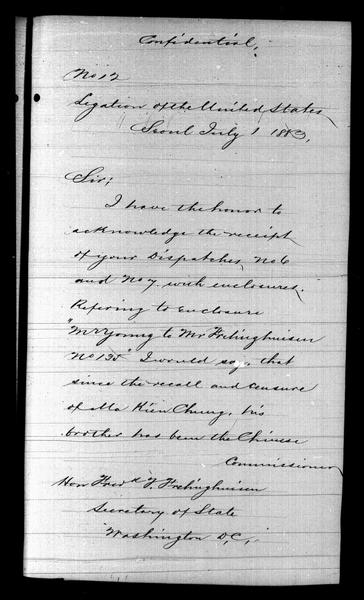 Confidential.
No 12
Legation of the United States
Seoul July 1 1883.
Sir;
I have the honor to
acknowledge the receipt
of your Dispatches, No 6
and No 7 with enclosures.
Refering to enclosure
"Mr Young to Mr Frelinghuisen
No 135" I would say, that
since the recall and censure
of Ma Kien Chung, his
brother has been the Chinese
Commissioner
Hon Fredk T. Frelinghuisen
Secretary of State
Washington D.C.